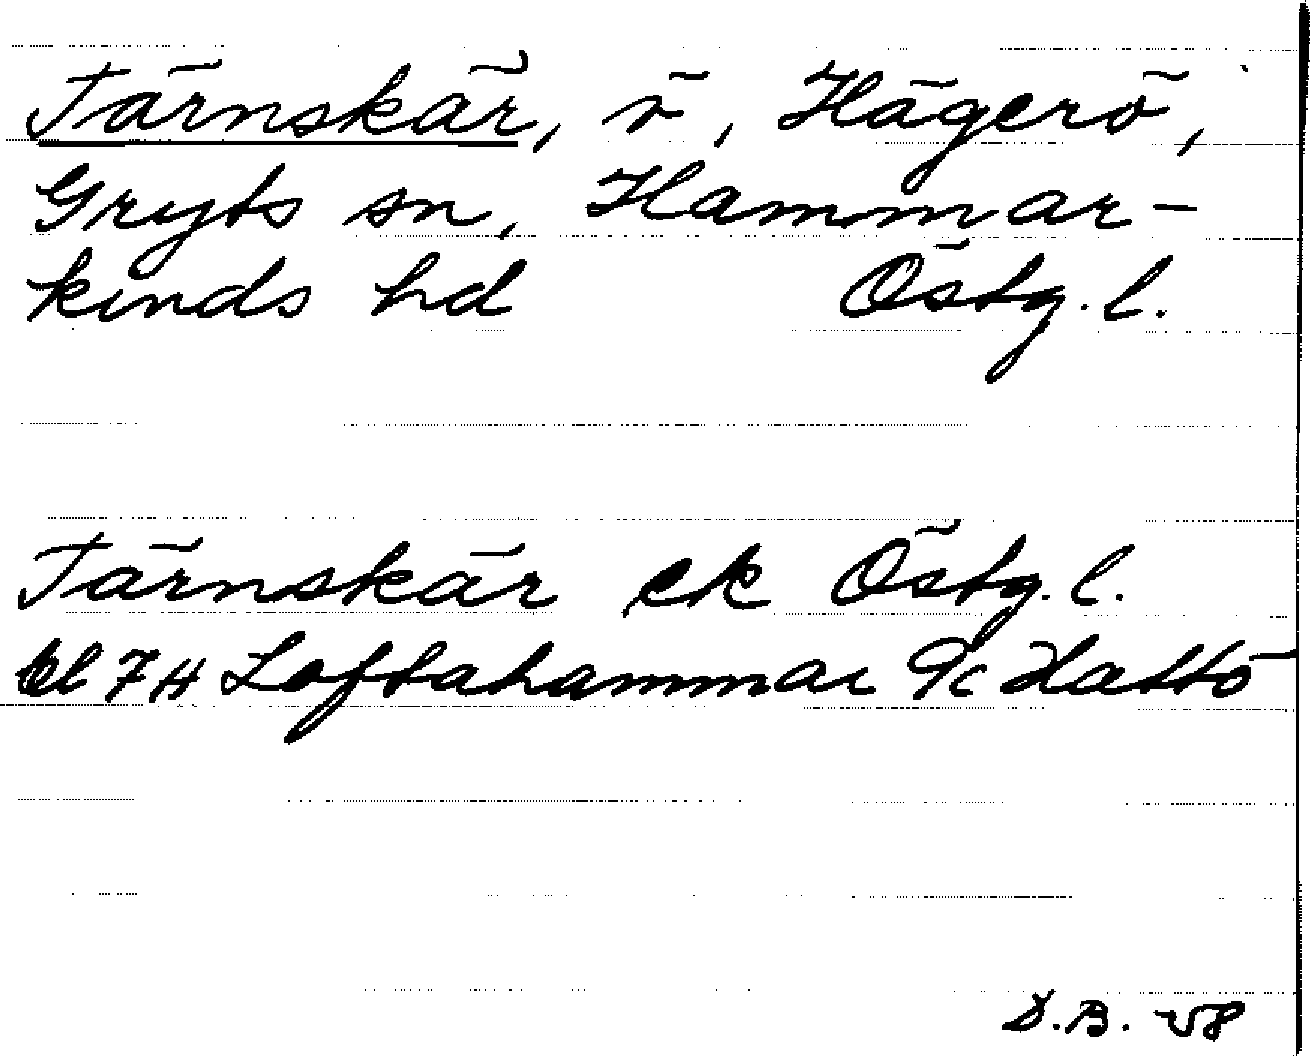 Tärnskär, ö, Hägerö,
Gryts sn, Hammar-
kinds hd Östg. l.
Tärnskär ek Östg. l.
bl 7H Loftahammar 9c Hattö
D.B. 58